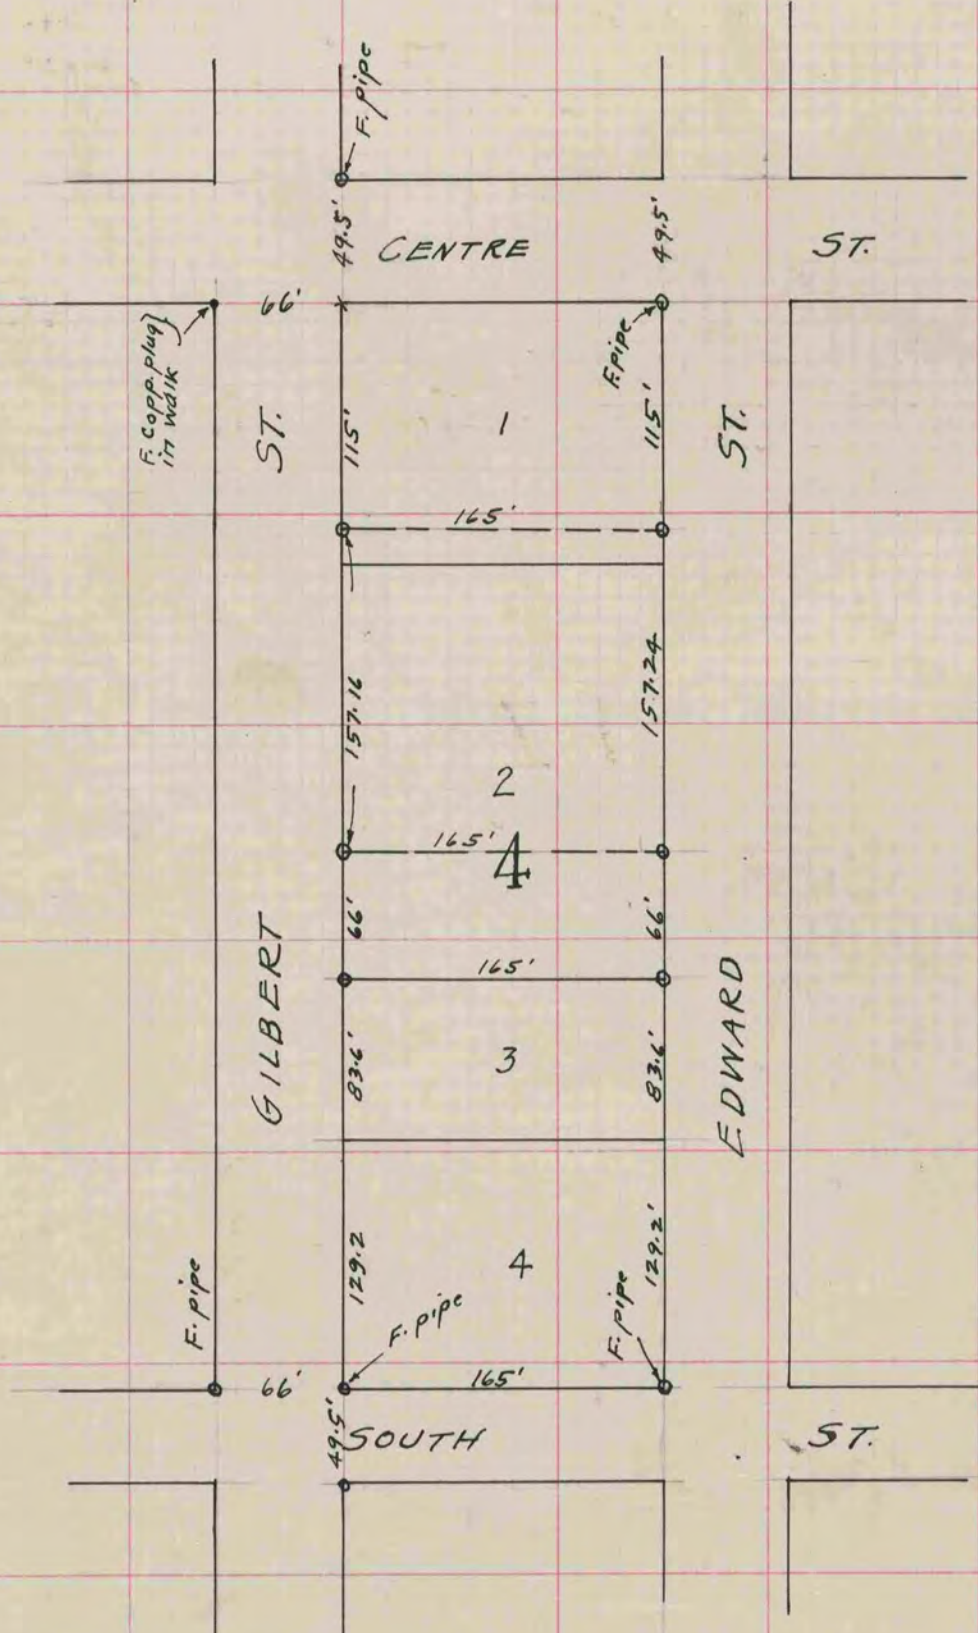 F. pipe
49.5'
CENTRE
49.5'
ST.
66'
F. Copp. plug}
in walk
F. pipe
ST.
115'
1
115'
ST.
165'
157.16
157.24
2
165'
4
66'
66'
165'
GILBERT
EDWARD
83.6'
3
83.6'
129.2
4
129.2'
F. pipe
F. pipe
F. pipe
66'
165'
49.5'
SOUTH
ST.